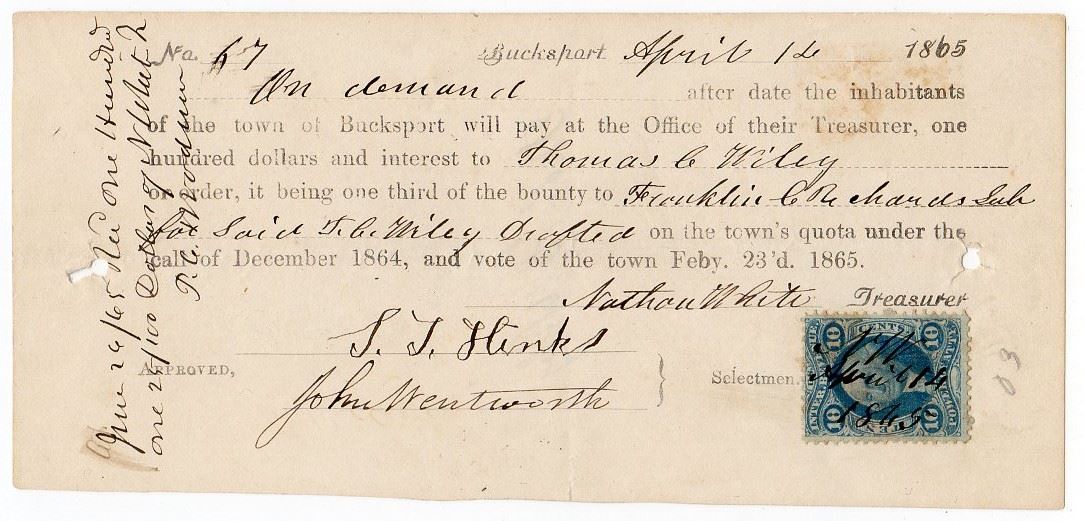 No. 67 Bucksport April 14 1865
On demand after date the inhabitants
of the town of Bucksport will pay at the Office of their Treasurer, one
hundred dollars and interest to Thomas C Wiley
or order, it being one third of the bounty to Franklin C Richards Sub
for Said T. C. Wiley Drafted on the town's quota under the
call of December 1864, and vote of the town Feby. 23'd. 1865.
Nathan White Treasurer
S. T. Hinks
APPROVED, Selectmen.
John Wentworth
10 CENTS 10
N W
April 14
1865
10 10
June 26/65 Recd one Hundred
one 21/100 Dollars of N White
T. C. Woodman
03